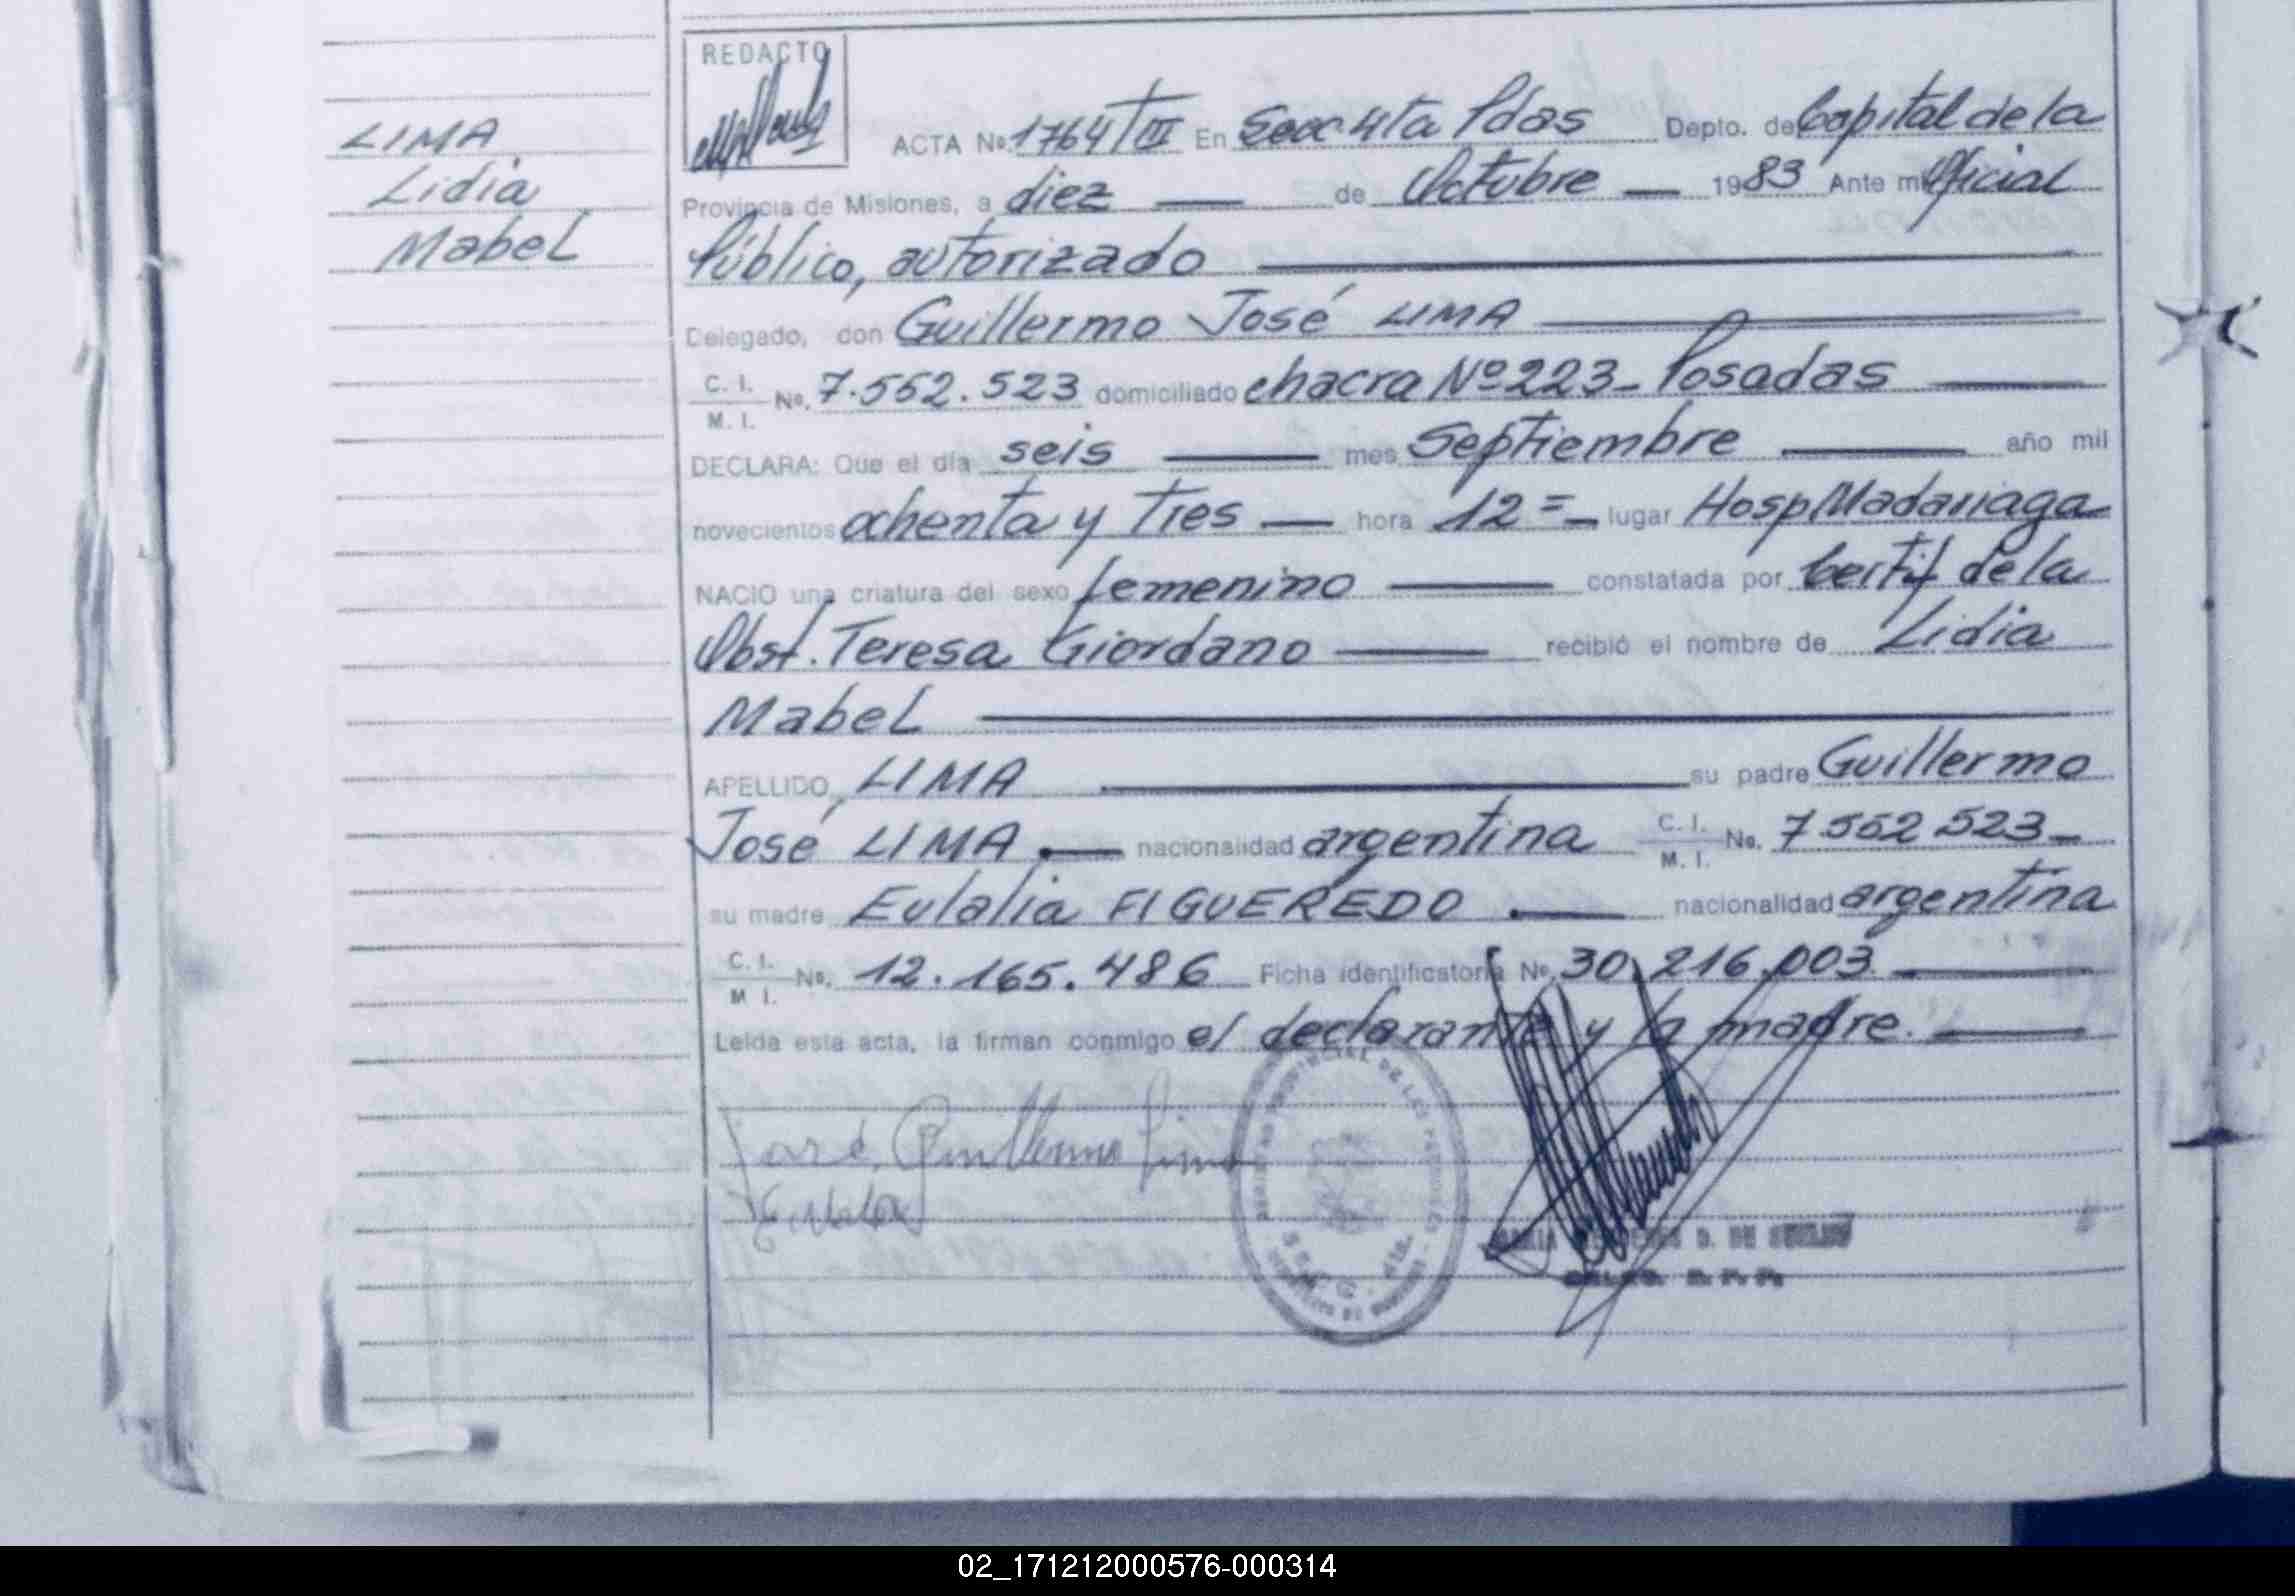 LIMA
Lidia
Mabel
REDACTO
ACTA No. 1764/III En Secc. 4ta Pdas Depto. de Capital de la
Provincia de Misiones, a diez de Octubre 1983 Ante mi Oficial
Público, autorizado
Delegado, don Guillermo José LIMA
C. I.
M. I. No. 7.562.523 domiciliado chacra Nº 223- Posadas
DECLARA: Que el día seis mes Septiembre año mil
novecientos ochenta y tres hora 12= lugar Hosp Madariaga
NACIO una criatura del sexo femenino constatada por Certif de la
Obst. Teresa Giordano recibió el nombre de Lidia
Mabel
APELLIDO, LIMA su padre Guillermo
José LIMA nacionalidad argentina C. I. M. I. No. 7.562 523-
su madre Eulalia FIGUEREDO nacionalidad argentina
C. I.
M. I. No. 12.165.486 Ficha identificatoria No. 30.216.003
Leída esta acta, la firman conmigo el declarante y la madre.
José Guillermo Lima
D. DE
02_171212000576-000314